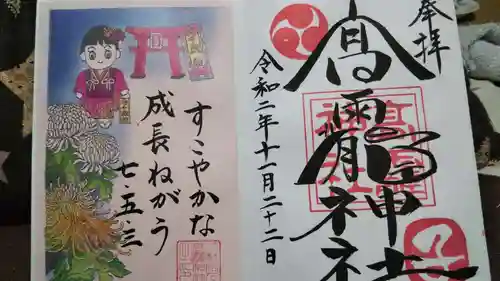 奉拝
高靇神社
令和二年十一月二十二日
すこやかな
成長ねがう
七・五・三